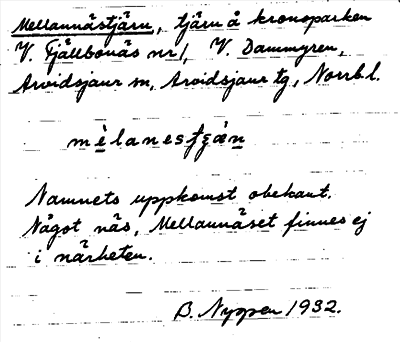 Mellannästjärn, tjärn å kronoparken
V. Fjällbonäs nr 1, V. Dammyren,
Arvidsjaur sn, Arvidsjaur tg, Norrb. l.
Namnets uppkomst obekant.
Något näs, Mellannäset finnes ej
i närheten.
B. Nygren 1932.